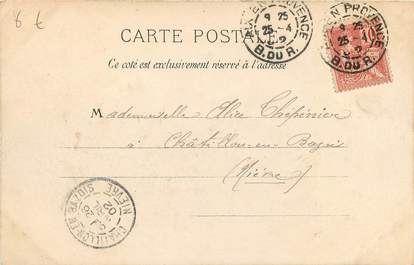 6 €
CARTE POSTALE
Ce côté est exclusivement réservé à l'adresse
AIX-EN-PROVENCE
9 25
25 - 4
02
B. DU R.
AIX-EN-PROVENCE
9 25
25 - 4
02
B. DU R.
Mademoiselle Alice
à Châtillon-en-Bazois
(Nièvre)
CHATILLON-EN-BAZOIS
26
AVRIL
02
NIEVRE